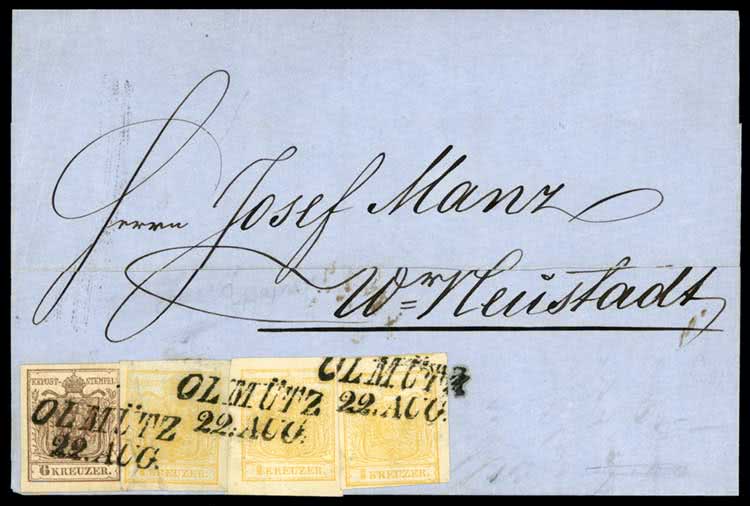 Herrn Josef Manz
Wr Neustadt
KKPOST-STEMPEL
6 KREUZER.
OLMÜTZ
22. AUG.
OLMÜTZ
22. AUG.
KREUZER
OLMÜTZ
22. AUG.
KREUZER